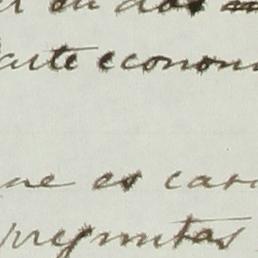 en dos
arte econom
ne es cas
preguntas